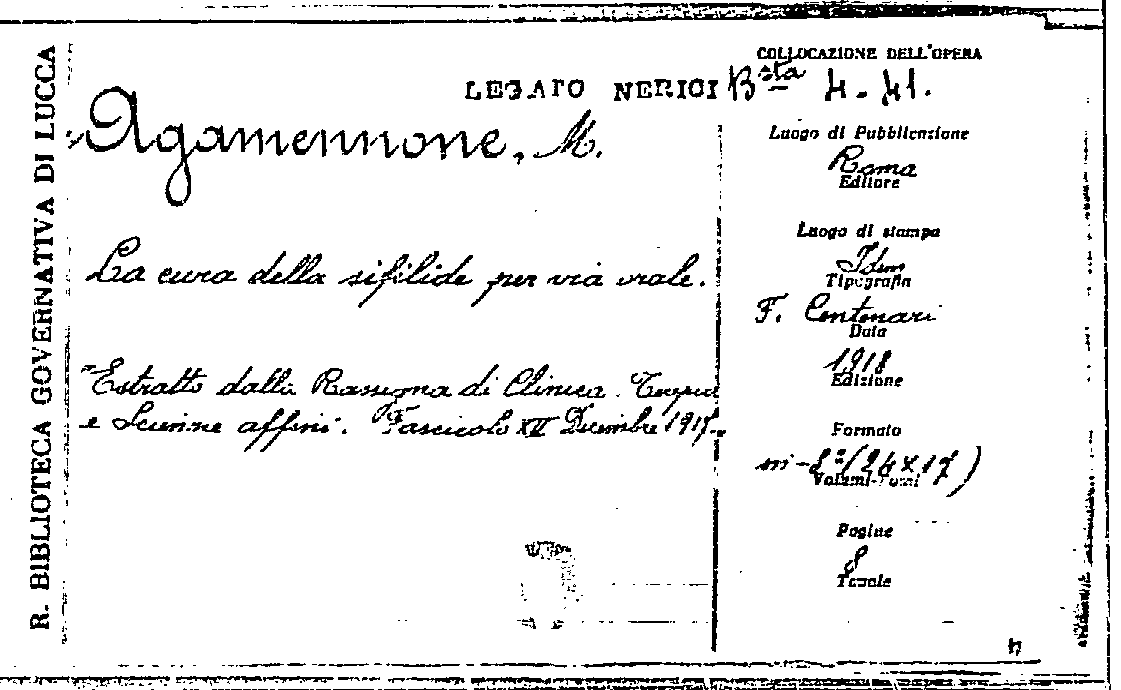 R. BIBLIOTECA GOVERNATIVA DI LUCCA
COLLOCAZIONE DELL'OPERA
LEGATO NERICI Bsta 4-41.
Agamennone, M.
La cura della sifilide per via orale.
Estratto dalla Rassegna di Clinica Terapia
e Scienze affini. Fascicolo XII Dicembre 1917.
Luogo di Pubblicazione
Roma
Editore
Luogo di stampa
Idem
Tipografia
F. Centenari
Data
1918
Edizione
Formato
in-8º (24×17)
Volumi-Tomi
Pagine
8
Tavole